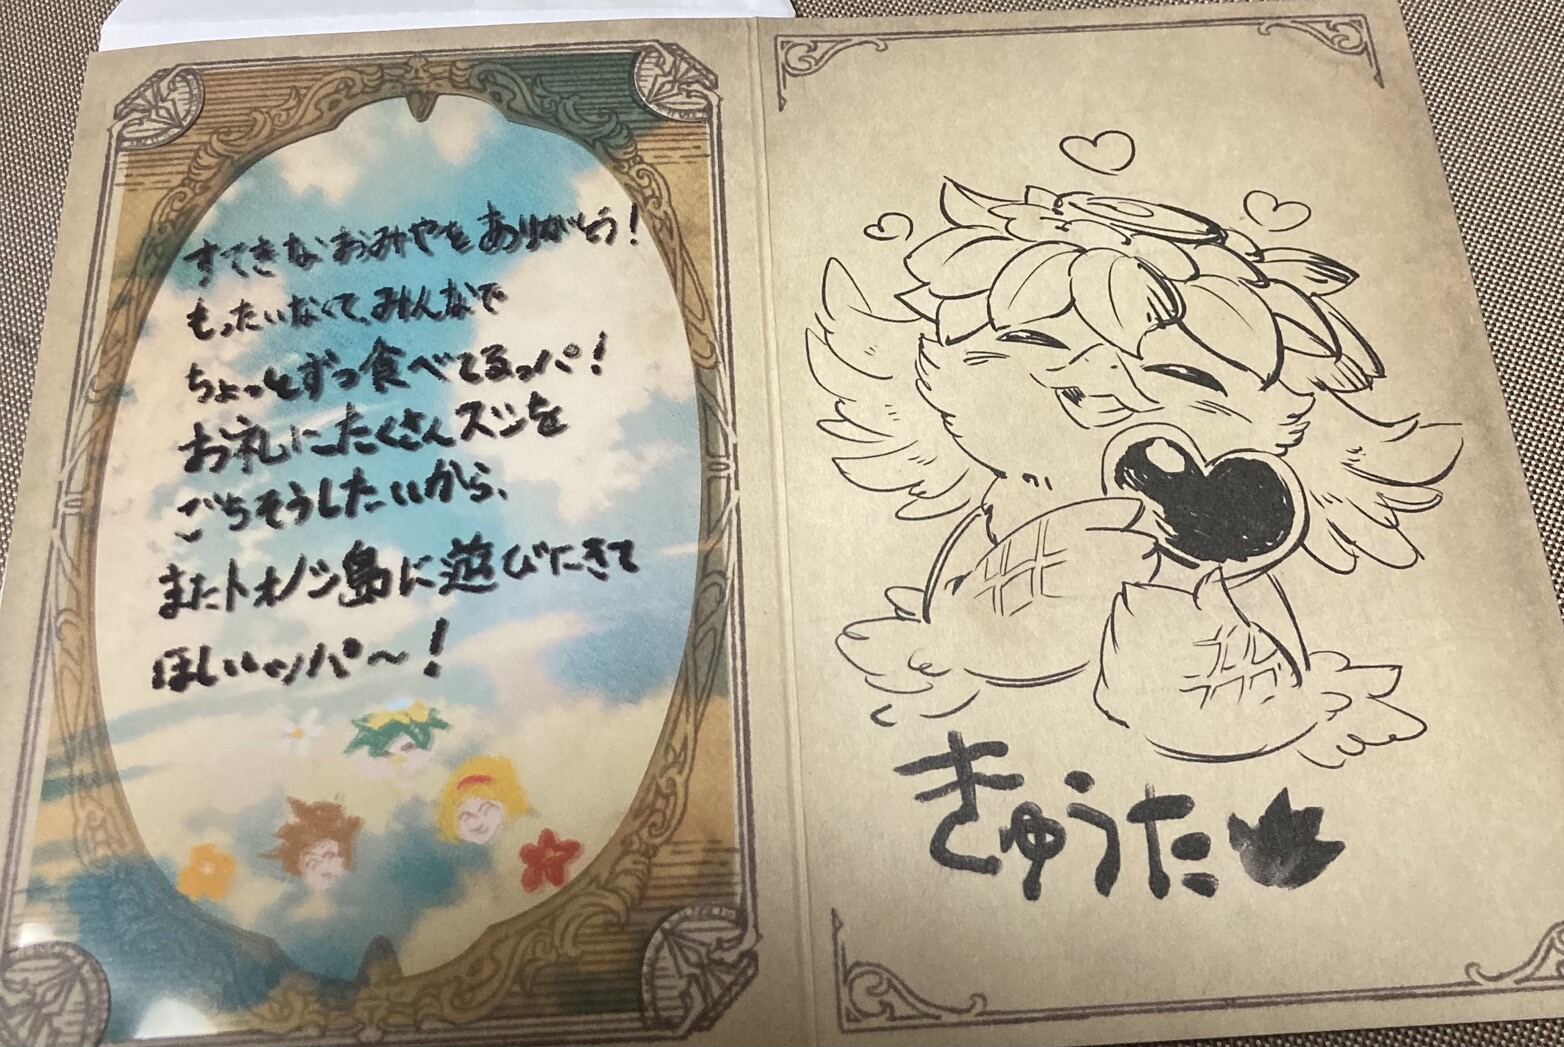 すてきなおみやをありがとう！
もったいなくて、みんなで
ちょっとずつ食べてるっパ！
お礼にたくさんスシを
ごちそうしたいから、
またトオノシ島に遊びにきて
ほしいッパ〜！
きゅうた